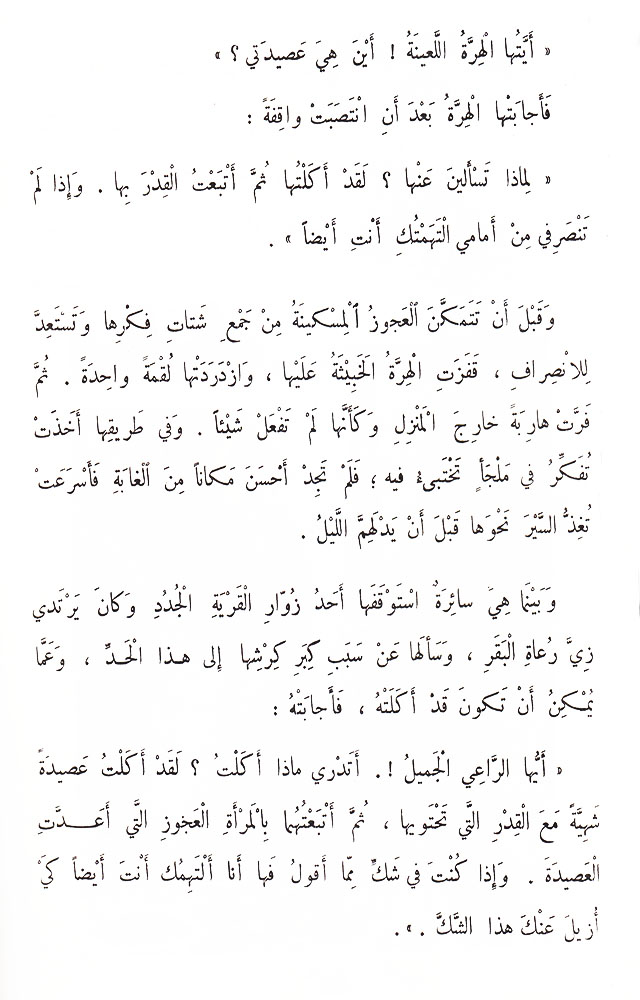 « أَيَّتُها الْهِرَّةُ اللَّعينَةُ ! أَيْنَ هِيَ عَصيدَتي ؟ »
فَأَجابَتْها الْهِرَّةُ بَعْدَ أَنِ انْتَصَبَتْ واقِفَةً :
« لِماذا تَسْأَلينَ عَنْها ؟ لَقَدْ أَكَلْتُها ثُمَّ أَتْبَعْتُ الْقِدْرَ بِها . وَإِذا لَمْ
تَنْصَرِفي مِنْ أَمامي الْتَهَمْتُكِ أَنْتِ أَيْضاً » .
وَقَبْلَ أَنْ تَتَمَكَّنَ الْعَجوزُ الْمِسْكينَةُ مِنْ جَمْعِ شَتاتِ فِكْرِها وَتَسْتَعِدَّ
لِلانْصِرافِ ، قَفَزَتِ الْهِرَّةُ الْخَبيْثَةُ عَلَيْها ، وَازْدَرَدَتْها لُقْمَةً واحِدَةً . ثُمَّ
فَرَّتْ هارِبَةً خارِجَ الْمَنْزِلِ وَكَأَنَّها لَمْ تَفْعَلْ شَيْئاً . وَفي طَريقِها أَخَذَتْ
تُفَكِّرُ في مَلْجَأٍ تَخْتَبىءُ فيه ؛ فَلَمْ تَجِدْ أَحْسَنَ مَكاناً مِنَ الْغابَةِ فَأَسْرَعَتْ
تُغِذُّ السَّيْرَ نَحْوَها قَبْلَ أَنْ يَدْلَهِمَّ اللَّيْلُ .
وَبَيْنَما هِيَ سائِرَةٌ اسْتَوْقَفَها أَحَدُ زُوّارِ الْقَرْيَةِ الْجُدُدِ وَكانَ يَرْتَدي
زِيَّ رُعاةِ الْبَقَرِ ، وَسَأَلَها عَنْ سَبَبِ كِبَرِ كِرْشِها إِلى هـذا الْحَـدِّ ، وَعَمَّا
يُمْكِنُ أَنْ تَكونَ قَدْ أَكَلَتْهُ ، فَأَجابَتْهُ :
« أَيُّها الرَّاعِي الْجَميلُ !. أَتَدْري ماذا أَكَلْتُ ؟ لَقَدْ أَكَلْتُ عَصيدَةً
شَهِيَّةً مَعَ الْقِدْرِ الَّتي تَحْتَويها ، ثُمَّ أَتْبَعْتُهُما بِالْمَرْأَةِ الْعَجوزِ الَّتي أَعَـــدَّتِ
الْعَصيدَةَ . وَإِذا كُنْتَ في شَكٍّ مِمّا أَقولُ فَها أَنا أَلْتَهِمُكَ أَنْتَ أَيْضاً كَيْ
أُزيلَ عَنْكَ هذا الشَّكَّ . ».